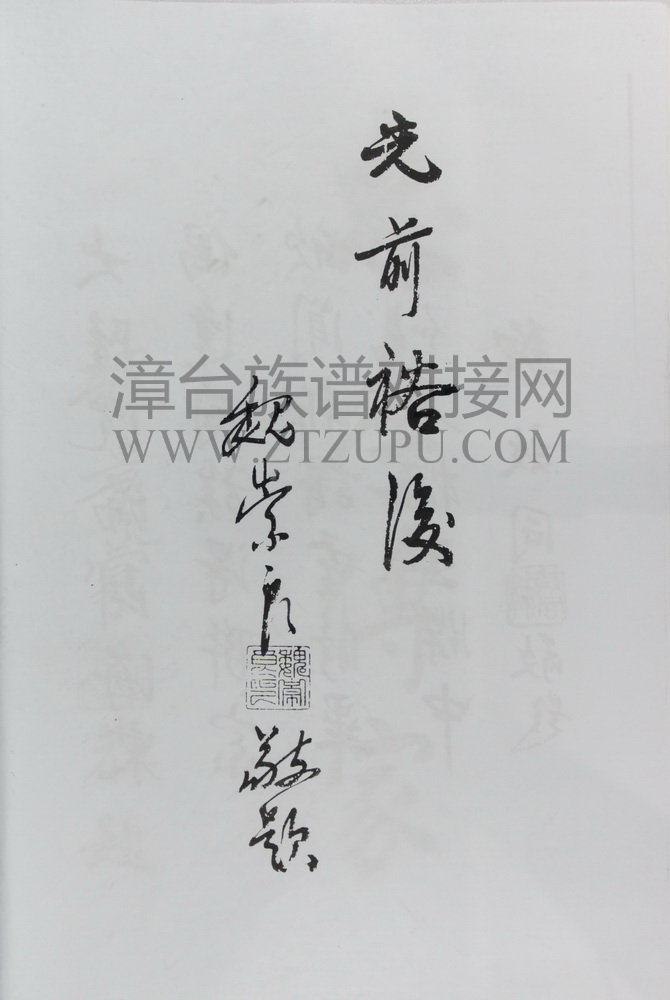 光前裕後
魏崇良
敬題
魏崇良印
漳台族谱对接网
WWW.ZTZUPU.COM